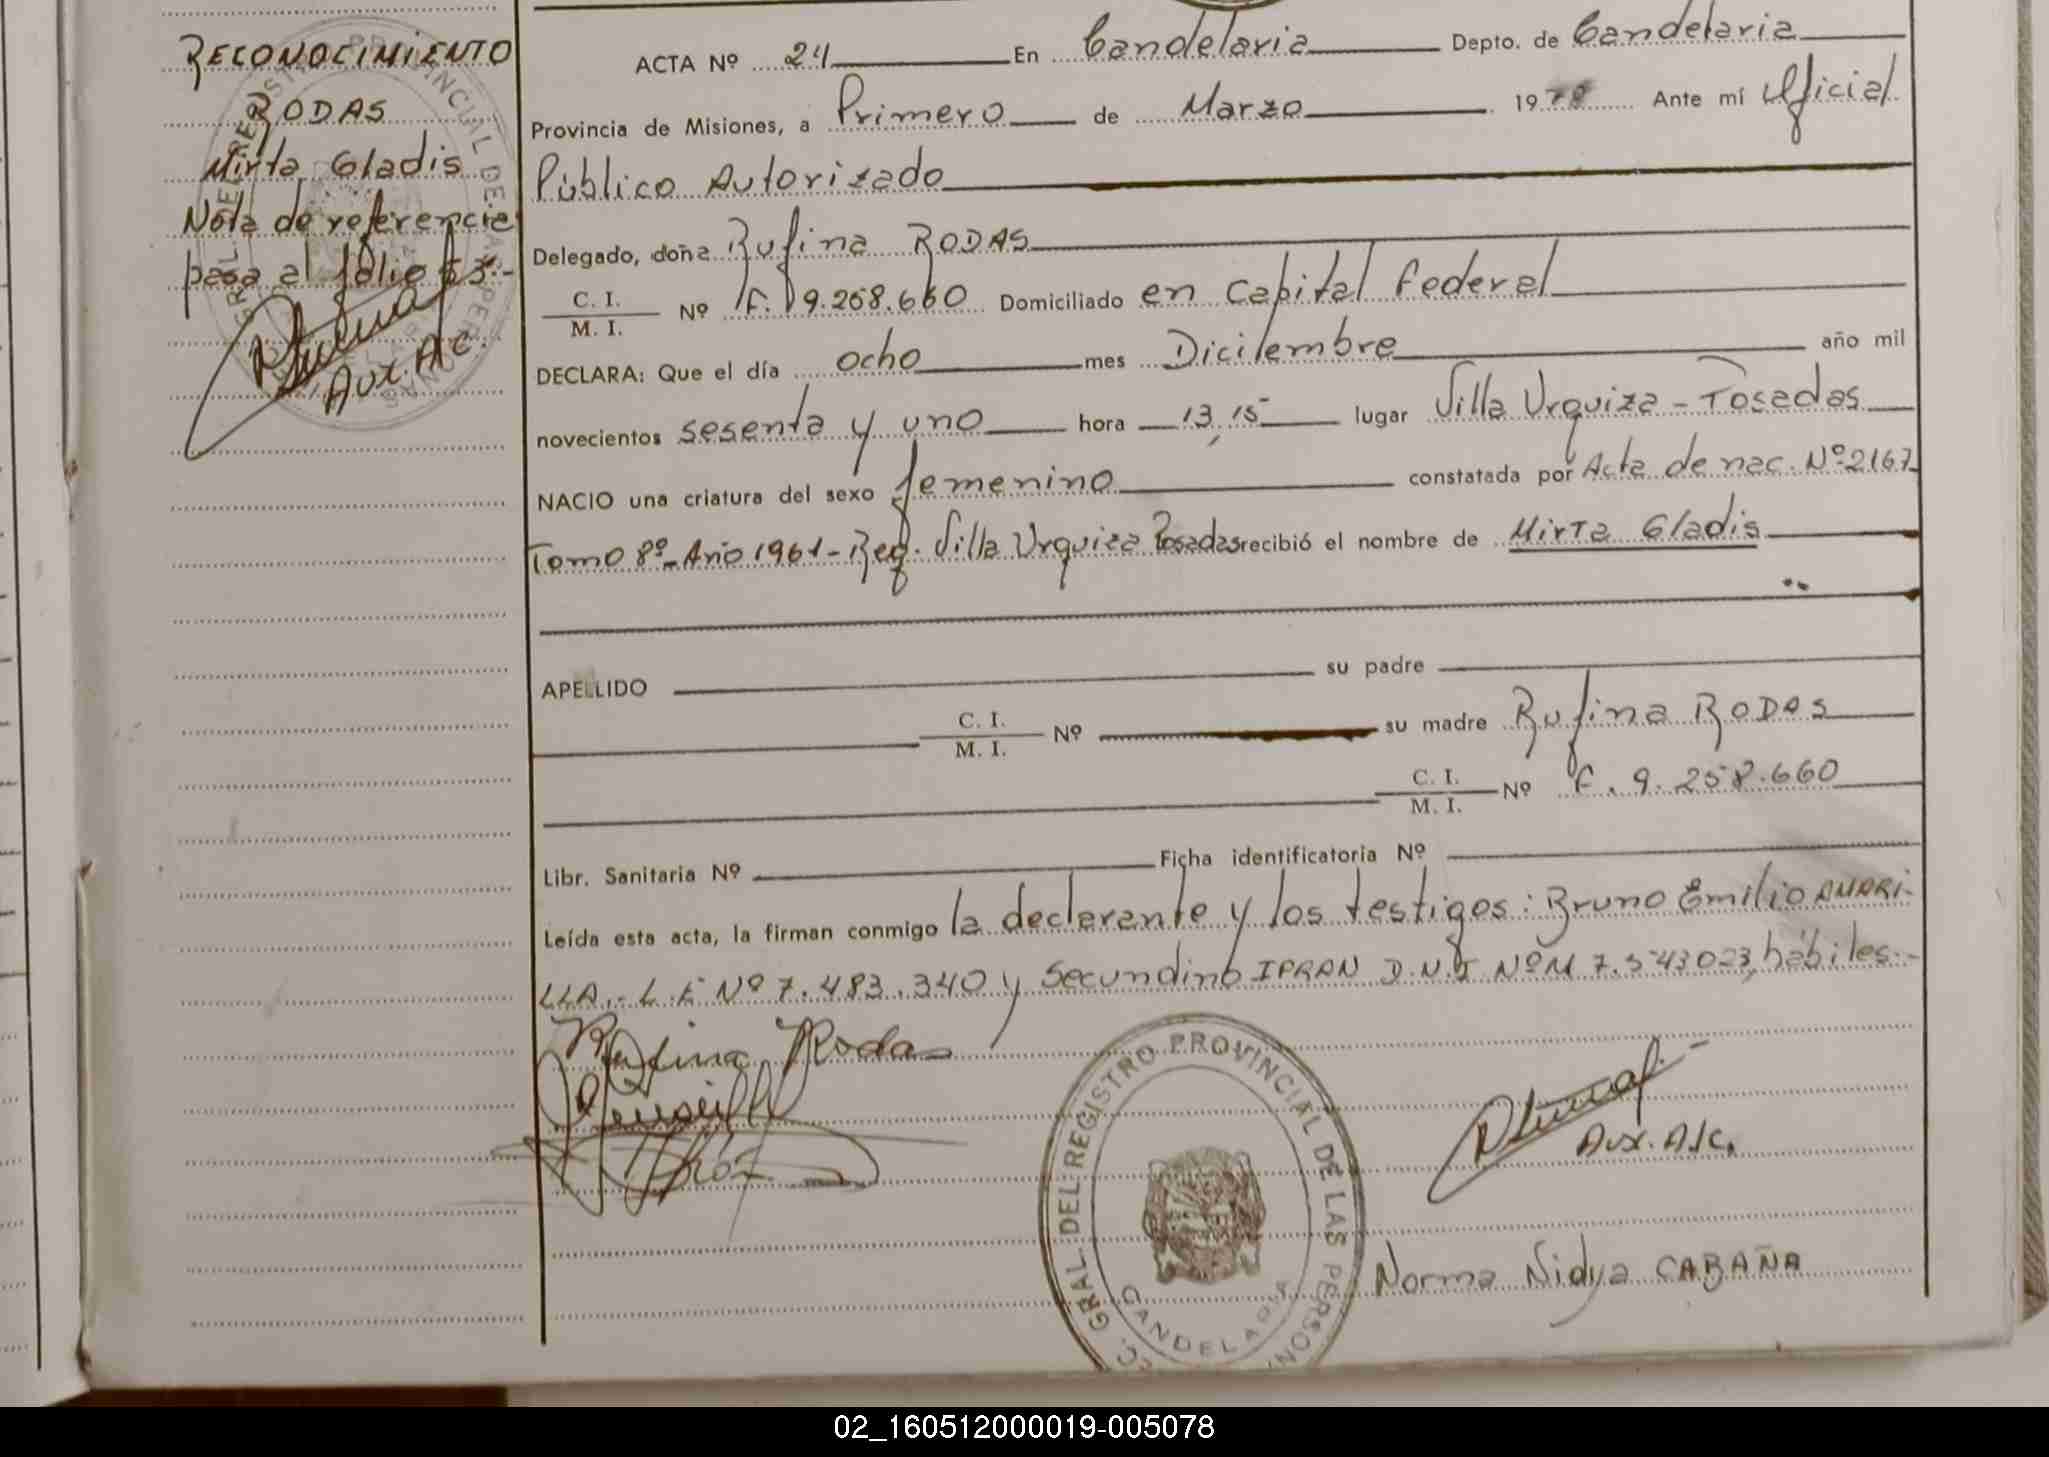 RECONOCIMIENTO
RODAS
Mirta Gladis
Nota de referencia
pasa al folio 53.-
Aux. A/c.
ACTA Nº 24 En Candelaria Depto. de Candelaria
Provincia de Misiones, a Primero de Marzo 1978 Ante mí Oficial
Público Autorizado
Delegado, doña Rufina RODAS
C. I.
M. I. Nº F. 9.258.660 Domiciliado en Capital Federal
DECLARA: Que el día ocho mes Diciembre año mil
novecientos sesenta y uno hora 13,15 lugar Villa Urquiza - Posadas
NACIO una criatura del sexo femenino constatada por Acta de nac. Nº 2167
Tomo 8º - Año 1961 - Reg. Villa Urquiza Posadas recibió el nombre de Mirta Gladis
APELLIDO su padre
C. I.
M. I. Nº su madre Rufina RODAS
C. I.
M. I. Nº F. 9.258.660
Libr. Sanitaria Nº Ficha identificatoria Nº
Leída esta acta, la firman conmigo la declarante y los testigos: Bruno Emilio AMARI-
LLA.- L.E Nº 7.483.340 y Secundino IPRAN D.N.I NºM 7.543023, hábiles.-
Rufina Rodas
Aux. A/c.
GRAL. DEL REGISTRO PROVINCIAL DE LAS PERSON
CANDELARIA
Norma Nidya CABAÑA
02_160512000019-005078